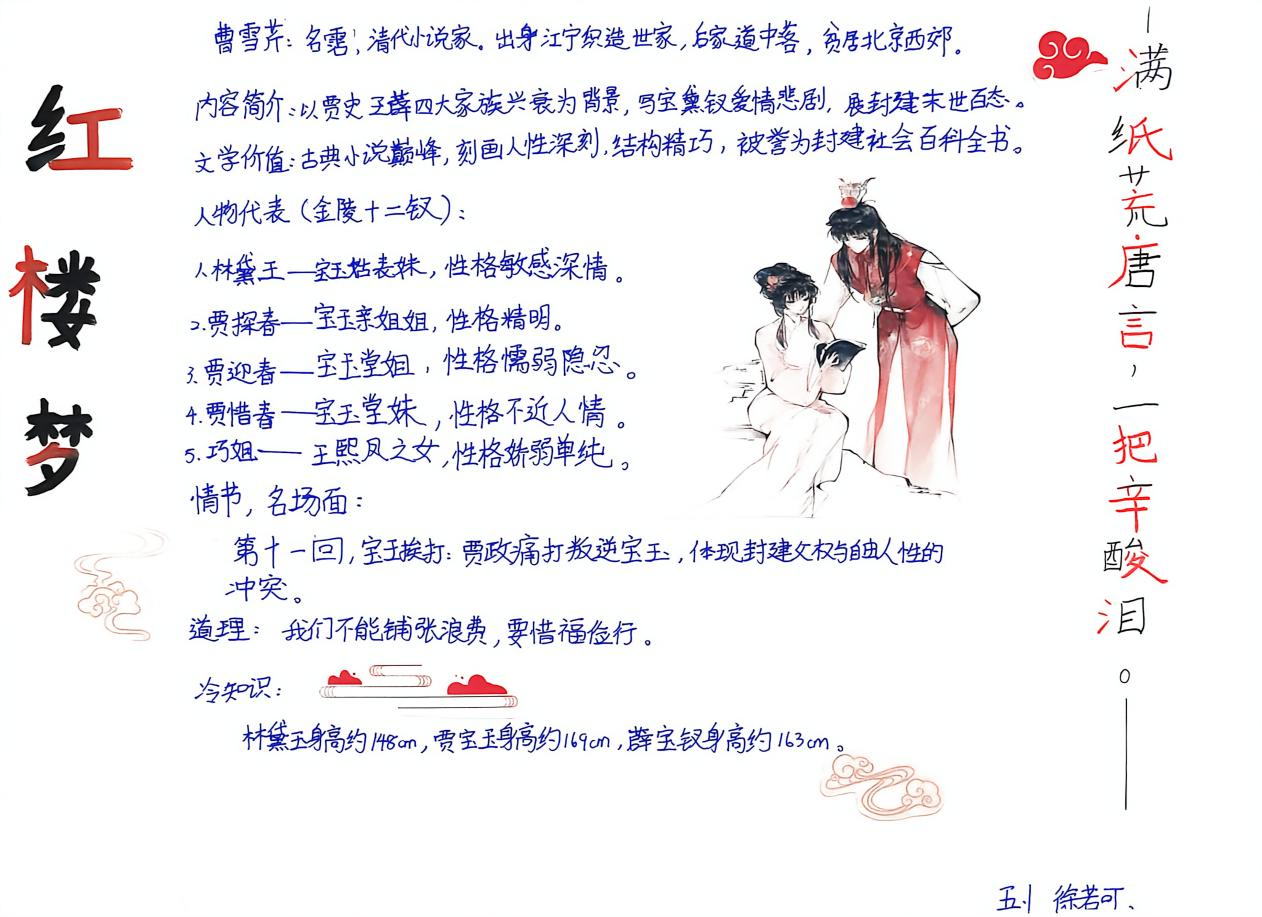 红楼梦
曹雪芹：名霑，清代小说家。出身江宁织造世家，后家道中落，贫居北京西郊。
内容简介：以贾史王薛四大家族兴衰为背景，写宝黛钗爱情悲剧，展封建末世百态。
文学价值：古典小说巅峰，刻画人性深刻，结构精巧，被誉为封建社会百科全书。
人物代表（金陵十二钗）：
1.林黛玉——宝玉姑表妹，性格敏感深情。
2.贾探春——宝玉亲姐姐，性格精明。
3.贾迎春——宝玉堂姐，性格懦弱隐忍。
4.贾惜春——宝玉堂妹，性格不近人情。
5.巧姐——王熙凤之女，性格娇弱单纯。
情节，名场面：
第十一回，宝玉挨打：贾政痛打叛逆宝玉，体现封建父权与自由人性的
冲突。
道理：我们不能铺张浪费，要惜福俭行。
冷知识：
林黛玉身高约148cm，贾宝玉身高约169cm，薛宝钗身高约163cm。
满纸荒唐言，一把辛酸泪。
五.1 徐若可.